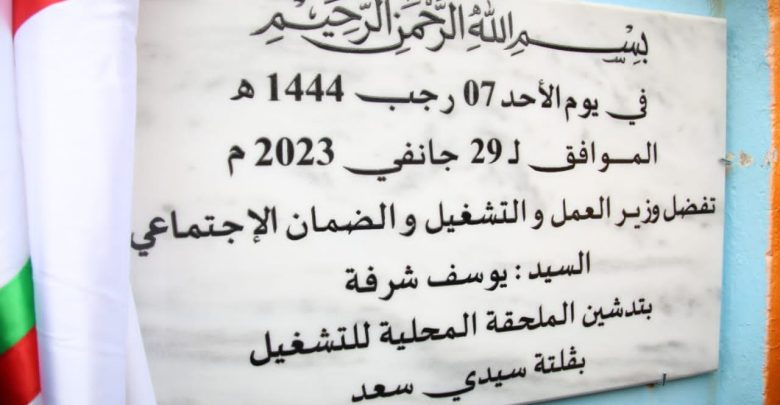 بسم الله الرحمن الرحيم
في يوم الأحد 07 رجب 1444 ه
الموافق لـ 29 جانفي 2023 م
تفضل وزير العمل و التشغيل و الضمان الإجتماعي
السيد : يوسف شرفة
بتدشين الملحقة المحلية للتشغيل
بڤلتة سيدي سعد